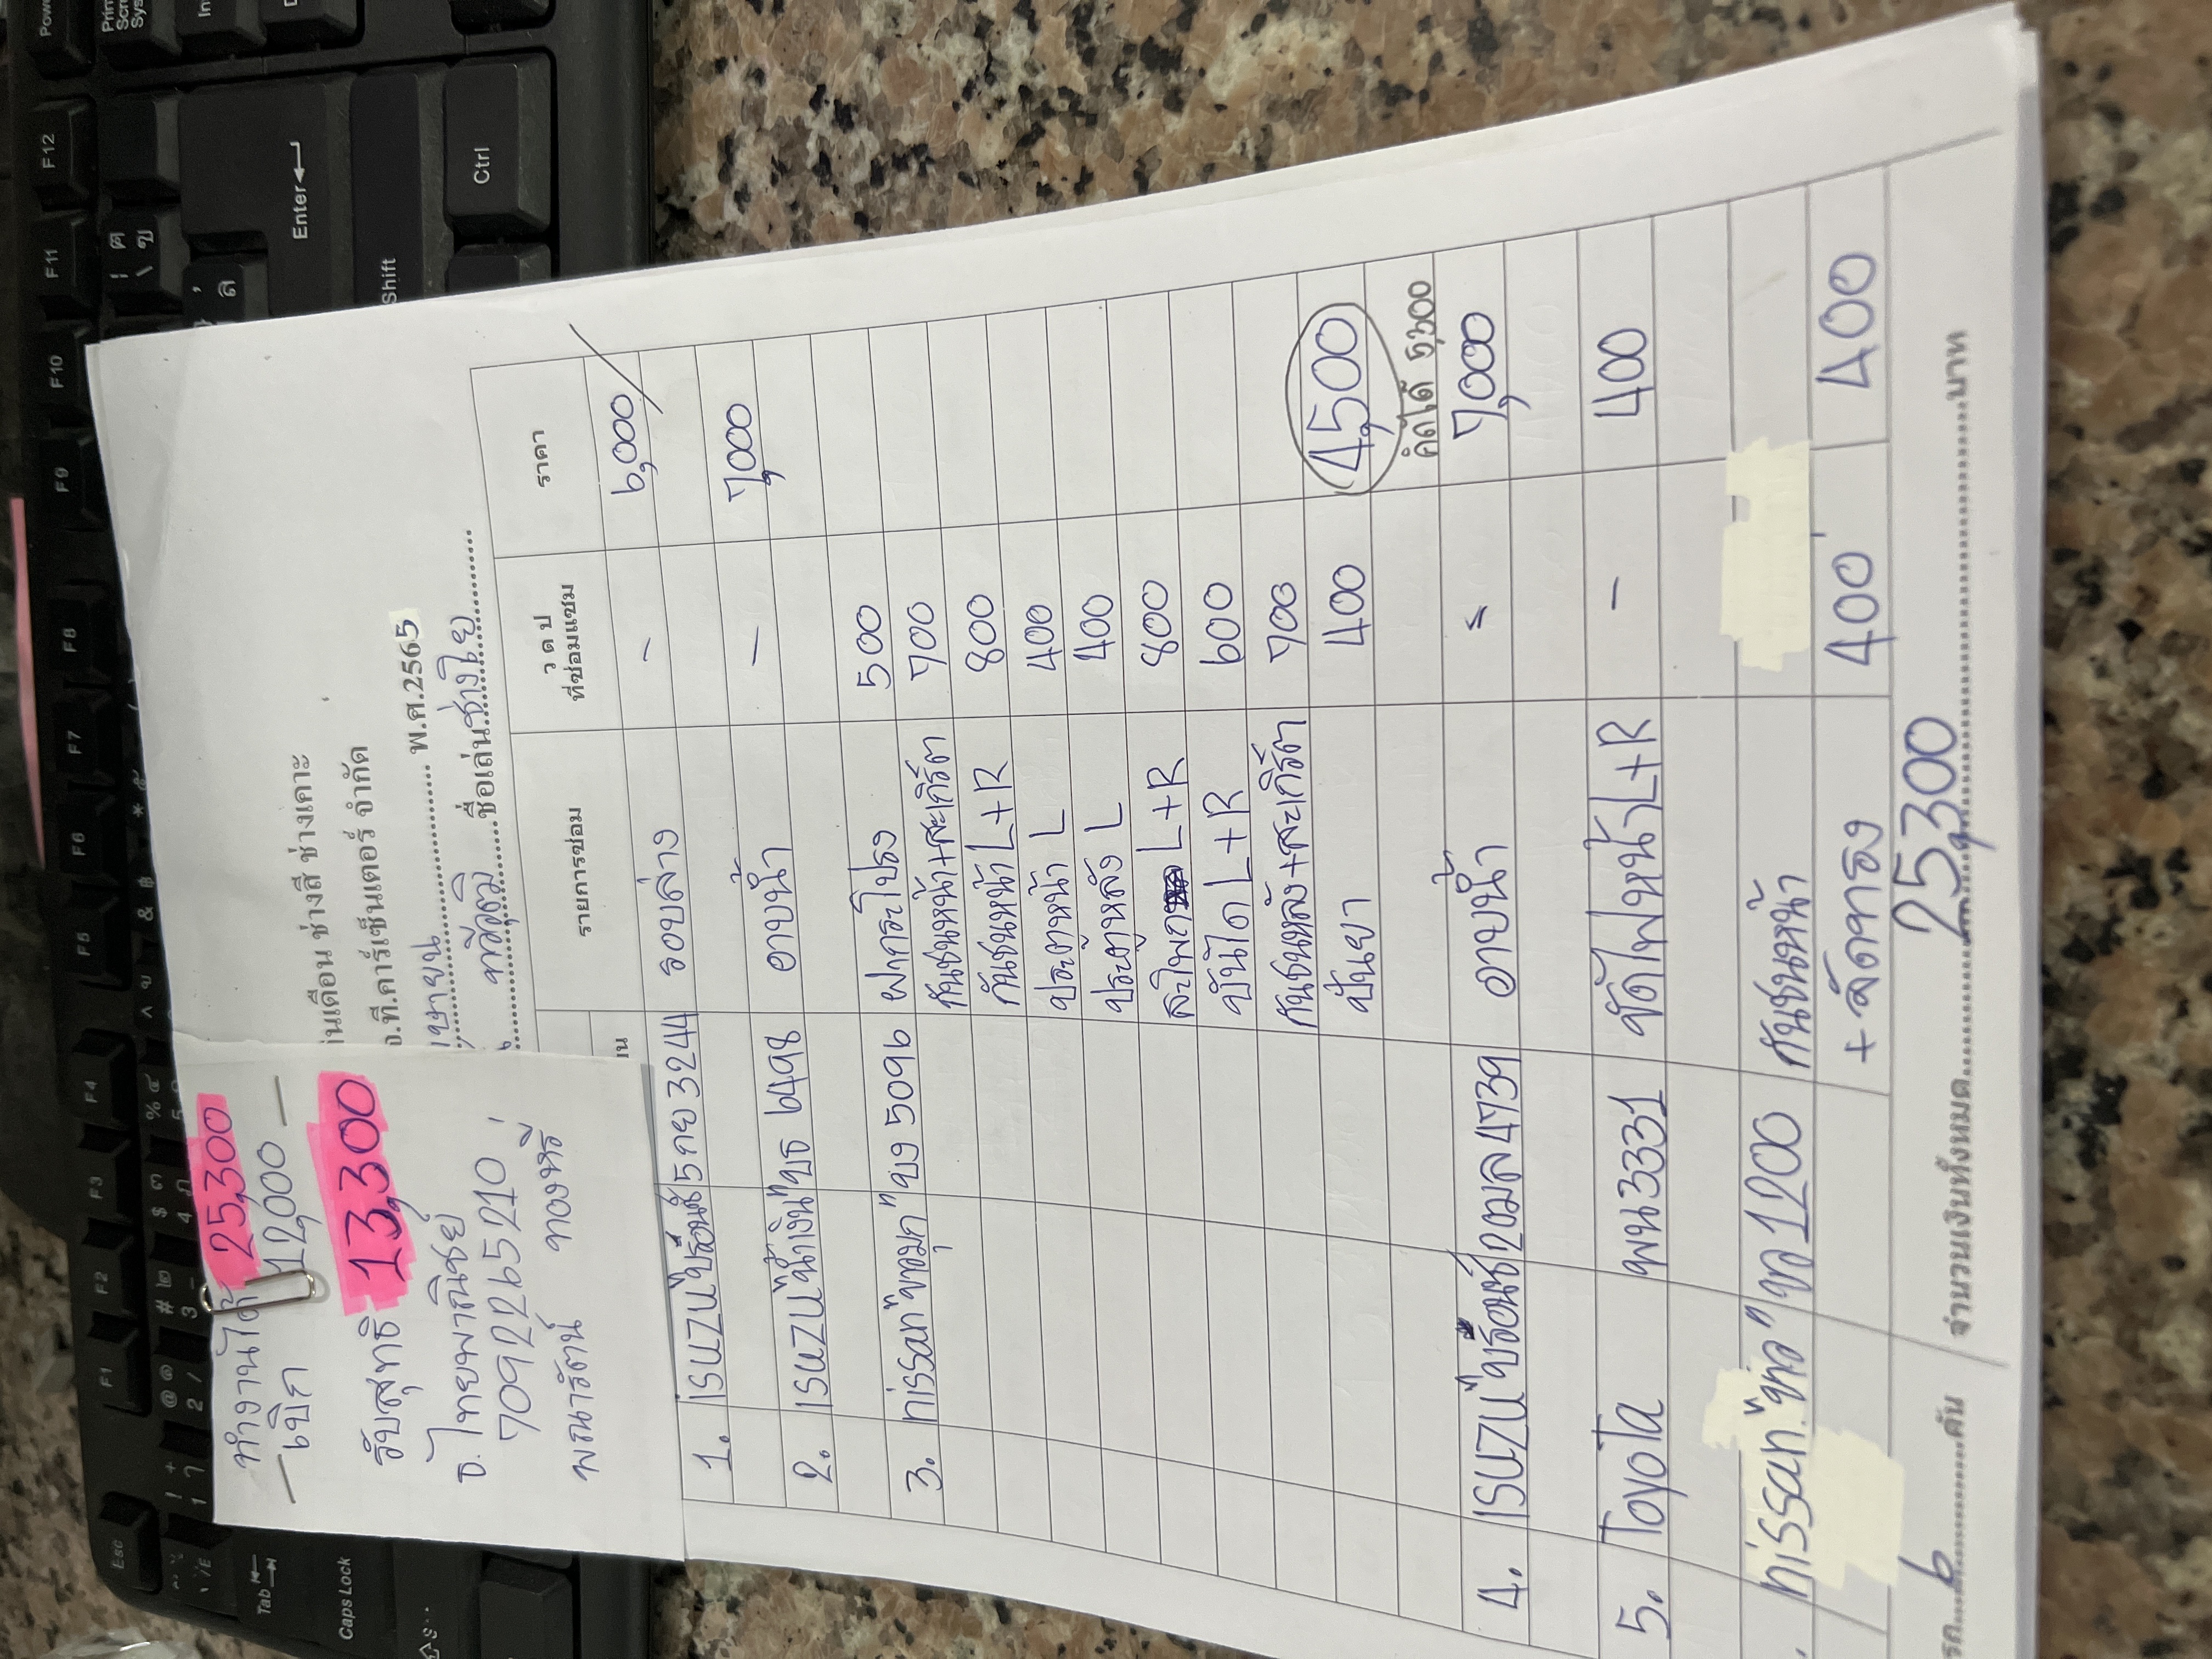 ทำงานได้ 25,300
เบิก 12,000
รับสุทธิ 13,300
ธ. ไทยพาณิชย์
7092265210
พรณารัตน์ ทองหรี
ช่างสี ช่างเคาะ
อ.ที.คาร์เซ็นเตอร์ จำกัด
เมษายน พ.ศ.2565
ชื่อเล่น ช่างไข
รายการซ่อม
ว ด ป
ที่ซ่อมแซม
ราคา
1. ISUZU "บรอนซ์" 5กย 3244 รอบล่าง - 6,000
2. ISUZU "น้ำเงิน" บธ 6498 อาบน้ำ - 7,000
3. nissan "ขามุก" ขง 5096 ฝากระโปรง 500
กันชนหน้า+สเกิร์ต 700
กันชนหน้า L+R 800
ประตูหน้า L 400
ประตูหลัง L 400
สะโพก L+R 800
บันได L+R 600
กันชนหลัง+สเกิร์ต 700
ปั่นยา 400 4,500
คิดได้ 5,300
4. ISUZU "บรอนซ์" 2ฒล 4739 อาบน้ำ = 7,000
5. Toyota พน 3331 ขัดไฟหน้า L+R - 400
nissan "ขาว" ขล 1200 กันชนหน้า
+ลัดทอง 400 400
6 คัน จำนวนเงินทั้งหมด 25,300 บาท
Power
F12
F11
F10
F9
F8
F7
F6
F5
F4
F3
F2
F1
Esc
Enter
Shift
Ctrl
Tab
Caps Lock